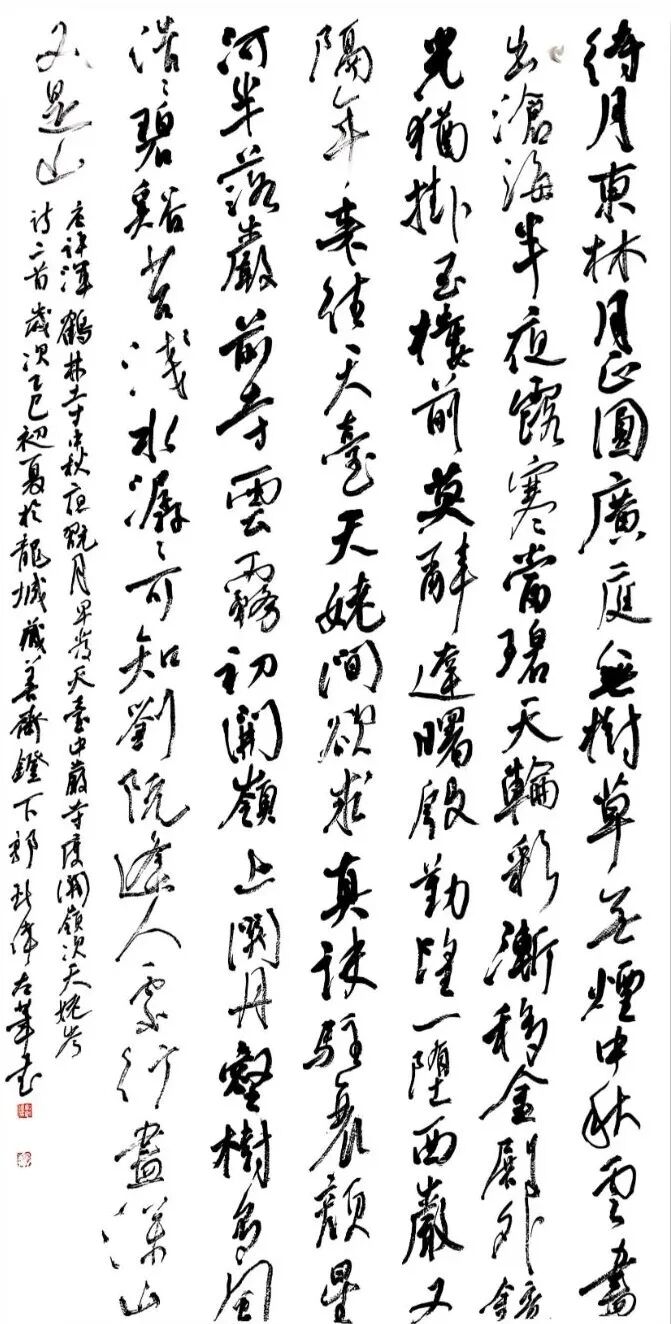 待月東林月正圓廣庭無樹草無煙中秋雲盡
出滄海半夜露寒當碧天輪彩漸移金殿外鏡
光猶掛玉樓前莫辭達曙殷勤望一墮西巖又
隔年來往天臺天姥間欲求真訣駐衰顏星
河半落巖前寺雲霧初開嶺上關丹壑樹多風
浩〻碧谿苔淺水潺〻可知劉阮逢人處行盡深山
又是山
唐許渾鶴林寺中秋夜翫月早發天臺中巖寺度關嶺次天姥岑
詩二首歲次乙巳初夏於龍城藏善齋鐙下左筆書